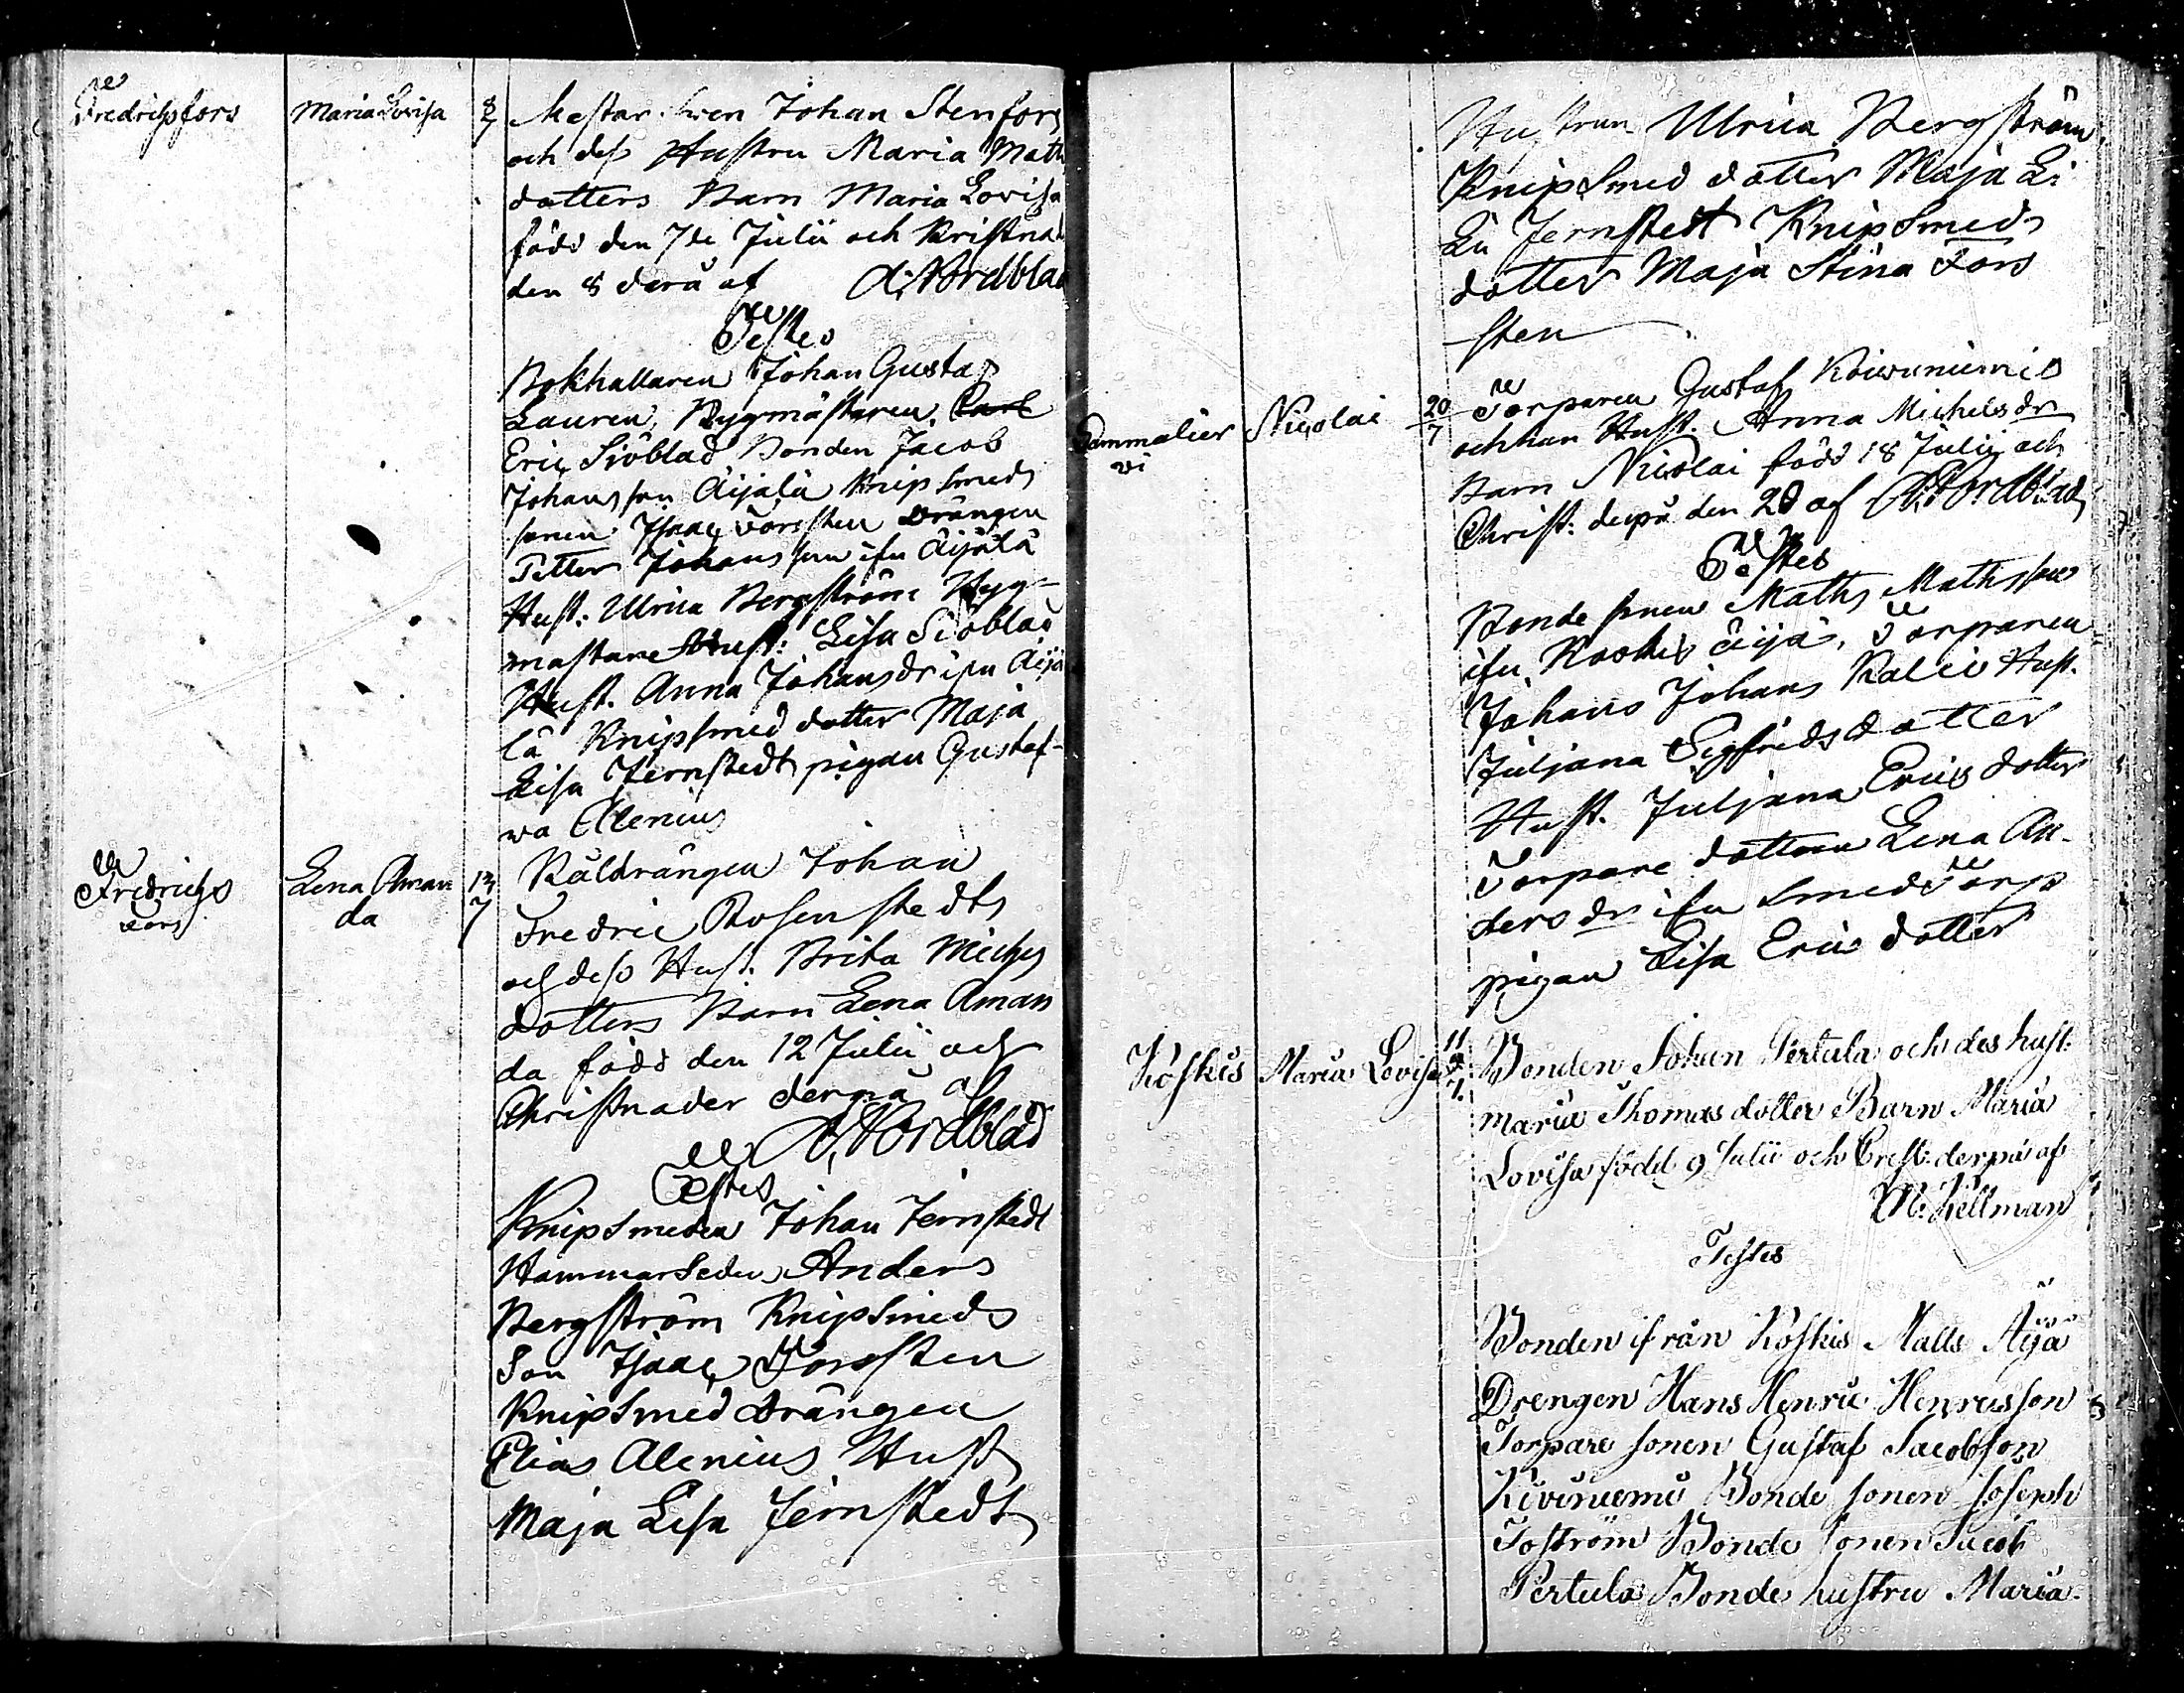 Fredrichsfors
Maria Lovisa
8
7
Mästar Sven Johan Stenfors
och dess Hustru Maria Math
dotters Barn Maria Lovisa
född den 7de Julii och Kristnad
den 8 derå af A; Nordblad
Testes
Bokhållaren Johan Gustaf
Lauren, Bygmästaren Carl
Eric Siöblad Bonden Jacob
Johansson Äijälä Knipsmeds
sonen Isaac Forssten Drängen
Petter Johansson ifrn Äijälä
Hust: Ulrica Bergström Byg-
mästare Hust: Lisa Siöblad
Hust. Anna Johansdr ifrn Äijä
lä Knipsmed dotter Maja
Lisa Jernstedt pigan Gustaf-
wa Alenius
Fredrichs
fors
Lena Aman
da
13
7
Kåldrängen Johan
Fredric Rosenstedts
och dess Hust. Brita Michs
dotters Barn Lena Aman
da född den 12 Julii och
Christnades derpå af
A; Nordblad
Testes
Knipsmeden Johan Jernstedt
Hammarseden Anders
Bergström Knipsmeds
Son Isaac Forssten
Knipsmed Drängen
Elias Alenius Hust
Maja Lisa Jernstedt
Hustrun Ulrica Bergström
Knipsmed dotter Maja Li
Jernstedt Knipsmeds
dotter Maja Stina Fors
sten
Tammalier
vi
Nicolai
20
7
Torparen Gustaf Koivuniemis
och han Hust. Anna Michelsdr
Barn Nicolai född 18 Julii och
Christ: derpå den 20 af A; Nordblad
Testes
Bonde sonen Maths Mathsson
ifrn Koskis Äijä, Torparen
Johans Johans Kalio Hust.
Juljana Sigfridsdotter
Hust. Juljana Erics dotter
Torpare dottern Lena An-
dersdr ifrn Smedstorp
pigan Lisa Erics dotter
Koskis
Maria Lovisa
11
7.
Bonden Johan Pertula och des hust.
Maria Thomas dotter Barn Maria
Lovisa född 9 Julii och Crest: derpå af
M: Kellman
Testes
Bonden ifrån Koskis Matts Äijä
Drengen Hans Henric Henricsson
Torpare sonen Gustaf Jacobson
Kiviniemi Bonde sonen Joseph
Toström Bonde sonen Jacob
Pertula Bonde hustru Maria